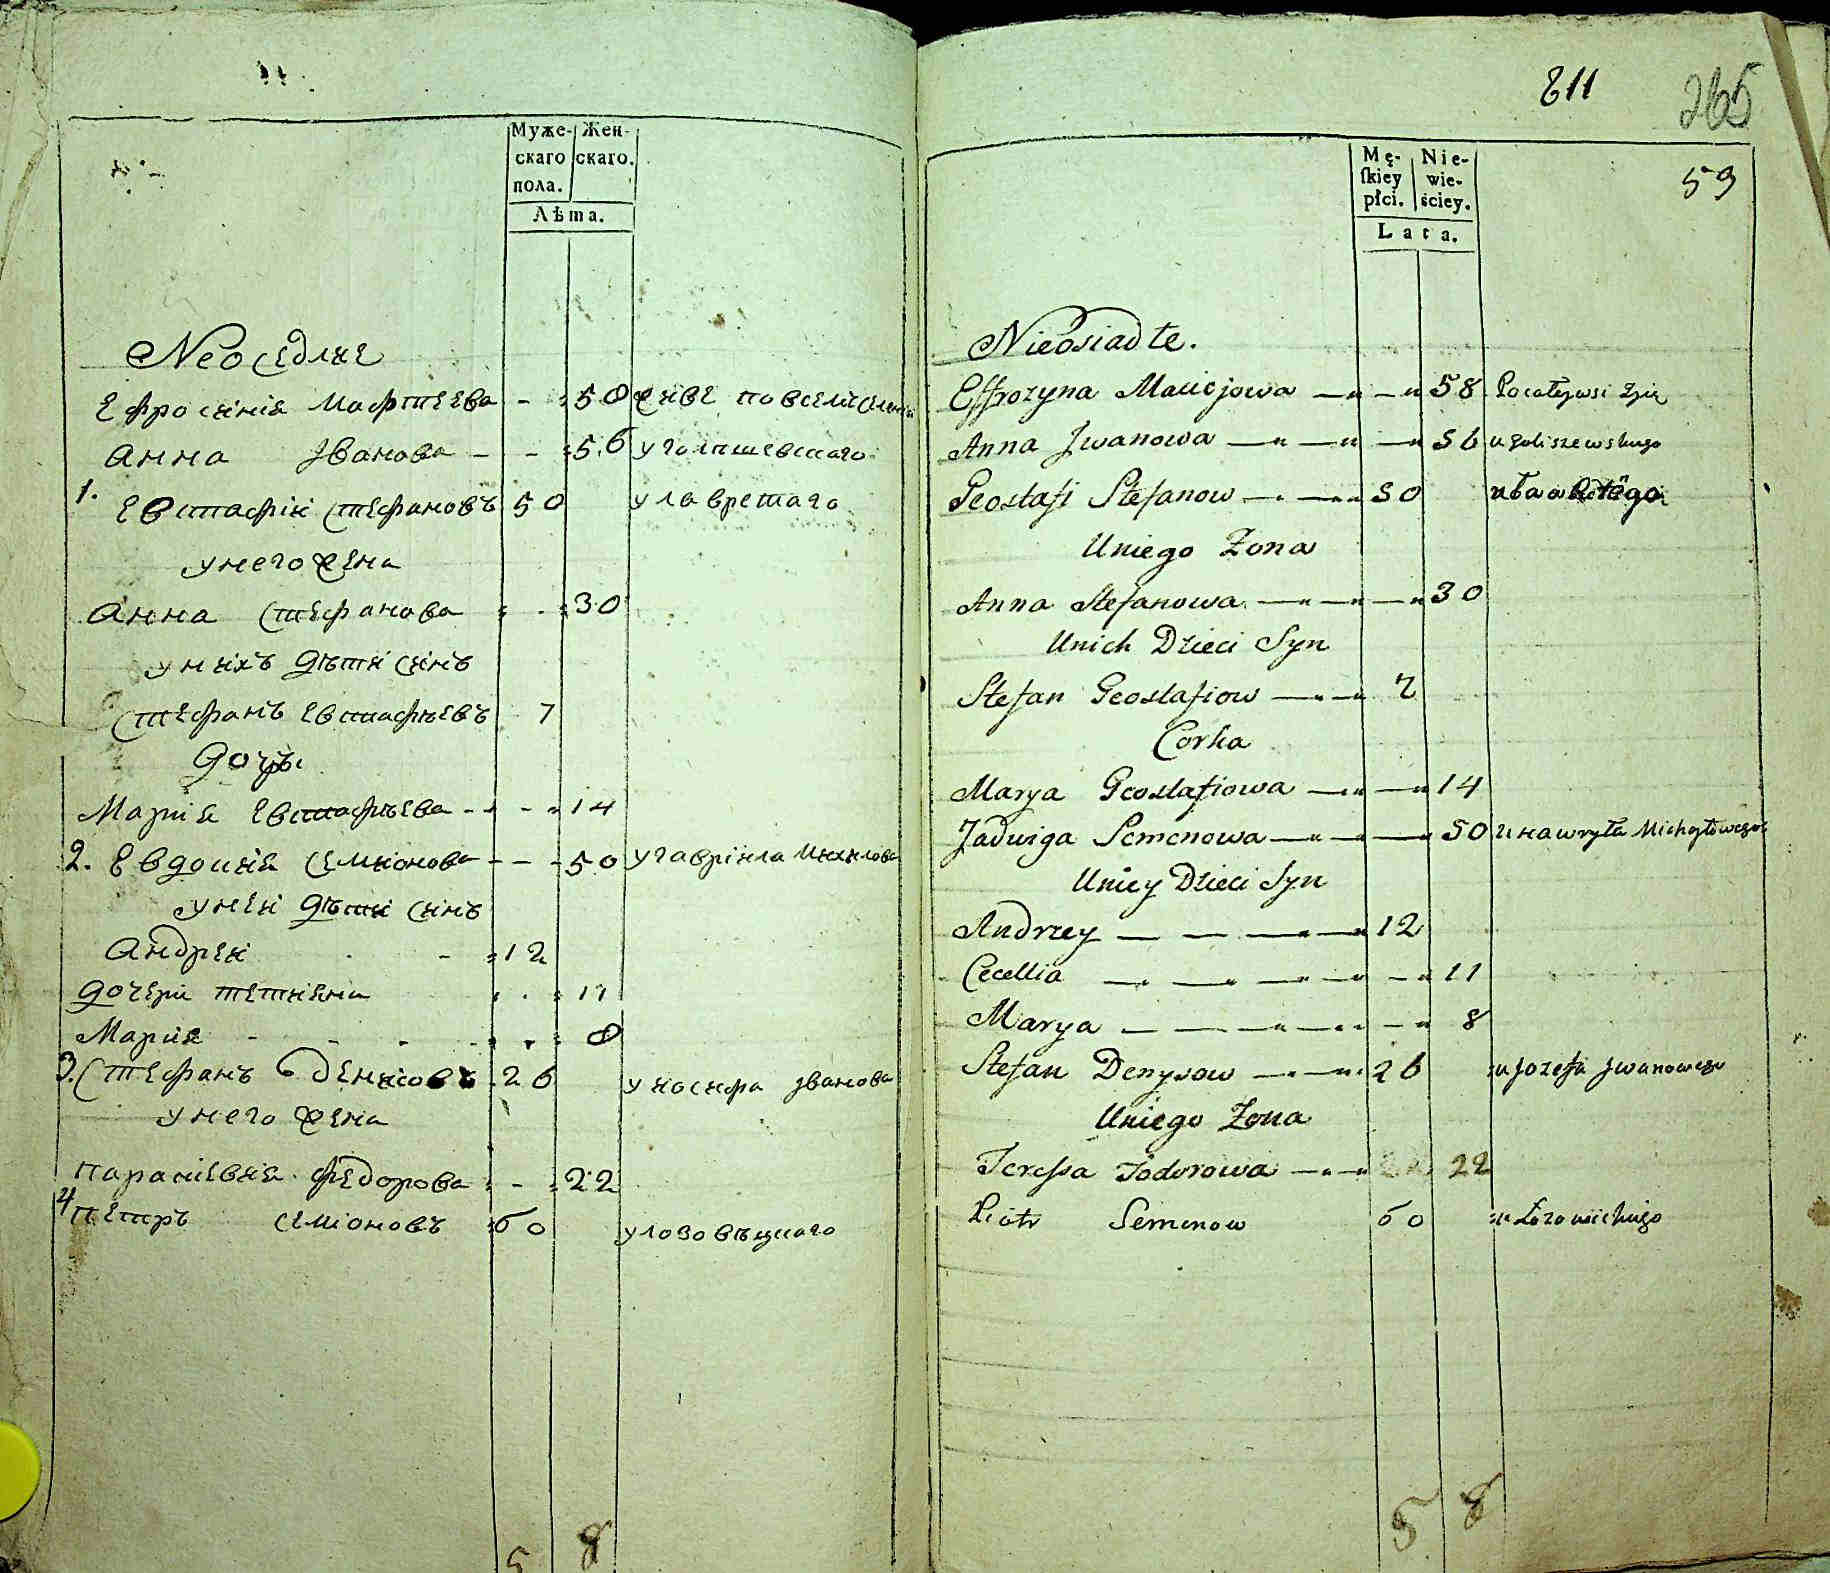 Муже-
скаго
пола.
Жен-
скаго.
Лѣта.
Неоседлие
Ефросиния Мафтеева 58 живе повсемъ селении
Анна Іванова 56 у голишевскаго
1. Евстафій Стефановъ 50
унего жена
Анна Стефанова 30
унихъ дѣти синъ
Стефанъ Евстафѣевъ 7
дочъ
Мария Евстафѣева 14
2. Евдокия Семионова 50 у гавриила Михилова
унеи дѣти синъ
Андреи 12
дочери 11
Мария 8
3. Стефанъ Денисовъ 26 у иосифа Іванова
унего жена
Параскевия Федорова 22
4 Петръ Семіоновъ 60 у лозовѣцкаго
5 8
811
265
59
Mę-
skiey
płci.
Nie-
wie-
ściey.
Lata.
Nieosiadłe.
Effrozyna Maciejowa 58 Pocałeywsi żyie
Anna Jwanowa 56 u goliszewskiego
Geostafi Stefanow 50
Uniego Żona
Anna Stefanowa 30
Unich Dzieci Syn
Stefan Geostafiow 7
Corka
Marya Geostafiowa 14
Jadwiga Semenowa 50 U hawryła Michajłowego
Uniey Dzieci Syn
Andrzey 12
Cecellia 11
Marya 8
Stefan Denysow 26 u Jozefa Jwanowego
Uniego Żona
Teressa Fodorowa 22
Piotr Semenow 60 u Łozowickiego
5 8